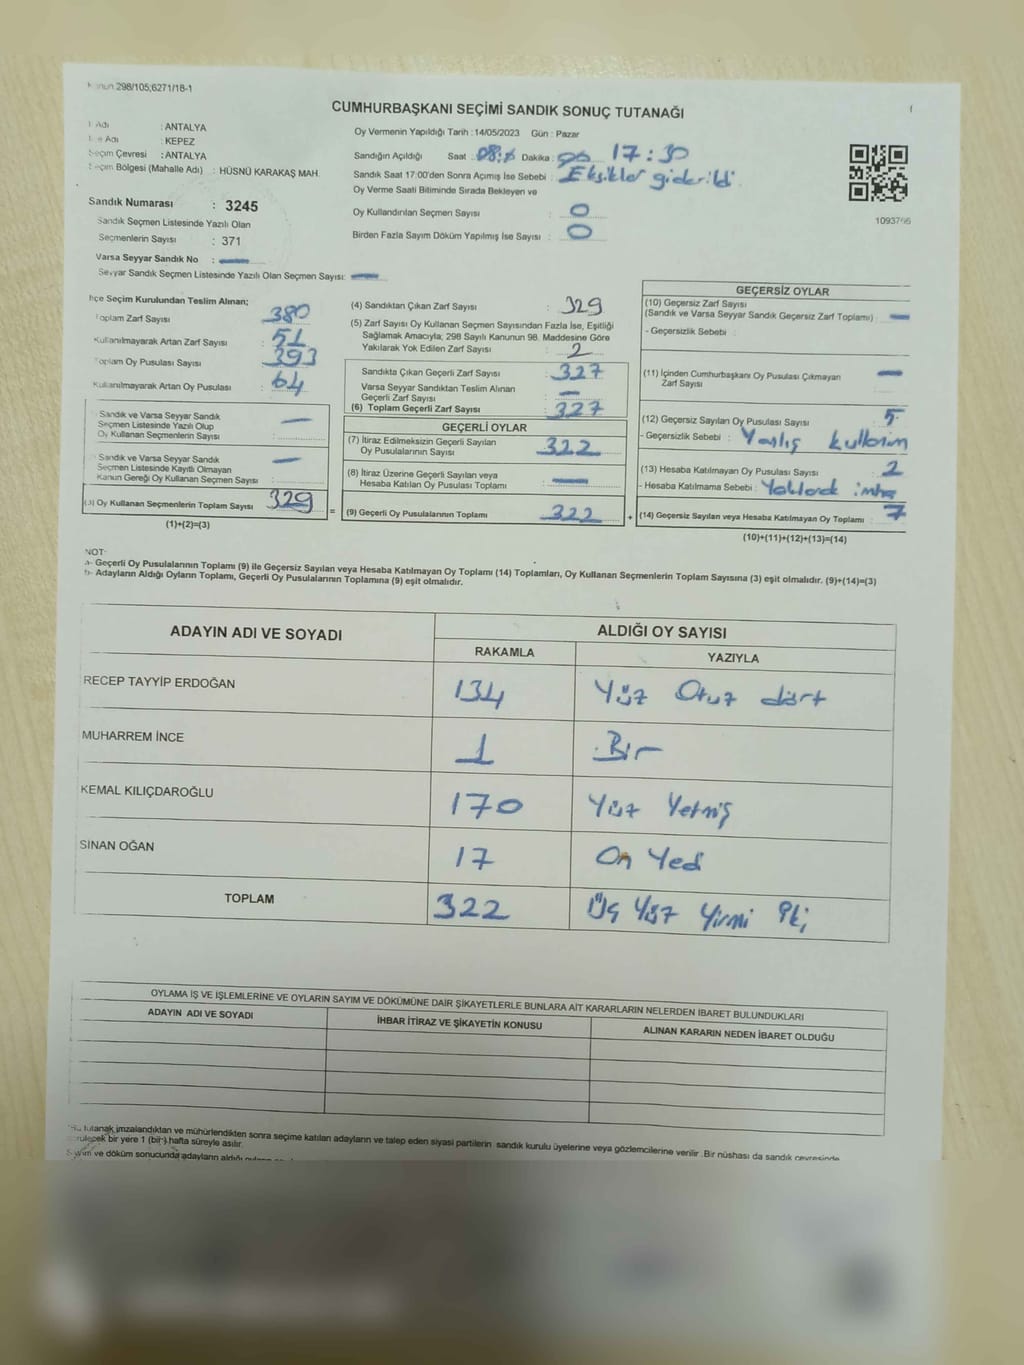 Kanun 298/105;6271/18-1
CUMHURBAŞKANI SEÇİMİ SANDIK SONUÇ TUTANAĞI
Adı : ANTALYA
Adı : KEPEZ
Seçim Çevresi : ANTALYA
Seçim Bölgesi (Mahalle Adı) : HÜSNÜ KARAKAŞ MAH.
Sandık Numarası : 3245
Sandık Seçmen Listesinde Yazılı Olan
Seçmenlerin Sayısı : 371
Varsa Seyyar Sandık No : —
Seyyar Sandık Seçmen Listesinde Yazılı Olan Seçmen Sayısı: —
Oy Vermenin Yapıldığı Tarih :14/05/2023 Gün : Pazar
Sandığın Açıldığı Saat : Dakika : 17:30
Sandık Saat 17:00'den Sonra Açımış İse Sebebi : Eksikler giderildi.
Oy Verme Saati Bitiminde Sırada Bekleyen ve
Oy Kullandırılan Seçmen Sayısı : 0
Birden Fazla Sayım Döküm Yapılmış İse Sayısı : 0
1093766
İlçe Seçim Kurulundan Teslim Alınan;
Toplam Zarf Sayısı : 380
Kullanılmayarak Artan Zarf Sayısı : 51
Toplam Oy Pusulası Sayısı : 393
Kullanılmayarak Artan Oy Pusulası : 64
Sandık ve Varsa Seyyar Sandık
Seçmen Listesinde Yazılı Olup
Oy Kullanan Seçmenlerin Sayısı : —
Sandık ve Varsa Seyyar Sandık
Seçmen Listesinde Kayıtlı Olmayan
Kanun Gereği Oy Kullanan Seçmen Sayısı : —
(3) Oy Kullanan Seçmenlerin Toplam Sayısı : 329
(1)+(2)=(3)
(4) Sandıktan Çıkan Zarf Sayısı : 329
(5) Zarf Sayısı Oy Kullanan Seçmen Sayısından Fazla İse, Eşitliği
Sağlamak Amacıyla; 298 Sayılı Kanunun 98. Maddesine Göre
Yakılarak Yok Edilen Zarf Sayısı : 2
Sandıkta Çıkan Geçerli Zarf Sayısı : 327
Varsa Seyyar Sandıktan Teslim Alınan
Geçerli Zarf Sayısı : —
(6) Toplam Geçerli Zarf Sayısı : 327
GEÇERLİ OYLAR
(7) İtiraz Edilmeksizin Geçerli Sayılan
Oy Pusulalarının Sayısı : 322
(8) İtiraz Üzerine Geçerli Sayılan veya
Hesaba Katılan Oy Pusulası Toplamı : —
= (9) Geçerli Oy Pusulalarının Toplamı : 322 +
GEÇERSİZ OYLAR
(10) Geçersiz Zarf Sayısı
(Sandık ve Varsa Seyyar Sandık Geçersiz Zarf Toplamı) : —
- Geçersizlik Sebebi :
(11) İçinden Cumhurbaşkanı Oy Pusulası Çıkmayan : —
Zarf Sayısı
(12) Geçersiz Sayılan Oy Pusulası Sayısı : 5
- Geçersizlik Sebebi : Yanlış kullanım
(13) Hesaba Katılmayan Oy Pusulası Sayısı : 2
- Hesaba Katılmama Sebebi : imha
(14) Geçersiz Sayılan veya Hesaba Katılmayan Oy Toplamı : 7
(10)+(11)+(12)+(13)=(14)
NOT:
a- Geçerli Oy Pusulalarının Toplamı (9) ile Geçersiz Sayılan veya Hesaba Katılmayan Oy Toplamı (14) Toplamları, Oy Kullanan Seçmenlerin Toplam Sayısına (3) eşit olmalıdır. (9)+(14)=(3)
b- Adayların Aldığı Oyların Toplamı, Geçerli Oy Pusulalarının Toplamına (9) eşit olmalıdır.
ADAYIN ADI VE SOYADI ALDIĞI OY SAYISI
RAKAMLA YAZIYLA
RECEP TAYYİP ERDOĞAN 134 Yüz Otuz dört
MUHARREM İNCE 1 Bir
KEMAL KILIÇDAROĞLU 170 Yüz Yetmiş
SİNAN OĞAN 17 On Yedi
TOPLAM 322 Üç Yüz Yirmi İki
OYLAMA İŞ VE İŞLEMLERİNE VE OYLARIN SAYIM VE DÖKÜMÜNE DAİR ŞİKAYETLERLE BUNLARA AİT KARARLARIN NELERDEN İBARET BULUNDUKLARI
ADAYIN ADI VE SOYADI İHBAR İTİRAZ VE ŞİKAYETİN KONUSU ALINAN KARARIN NEDEN İBARET OLDUĞU
Bu tutanak imzalandıktan ve mühürlendikten sonra seçime katılan adayların ve talep eden siyasi partilerin sandık kurulu üyelerine veya gözlemcilerine verilir. Bir nüshası da sandık çevresinde
görülecek bir yere 1 (bir) hafta süreyle asılır.
Sayım ve döküm sonucunda adayların aldığı